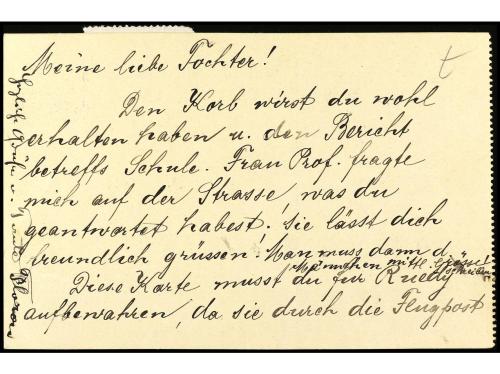 Meine liebe Tochter!
Den Korb wirst du wohl
erhalten haben u. den Bericht
betreffs Schule. Frau Prof. fragte
mich auf der Strasse, was du
geantwortet habest. Sie lässt dich
freundlich grüssen. Man muss dann d.
mitt. Grüsse!
Diese Karte musst du für Ruedy
aufbewahren, da sie durch die Flugpost
Herzliche Grüsse v. Tante